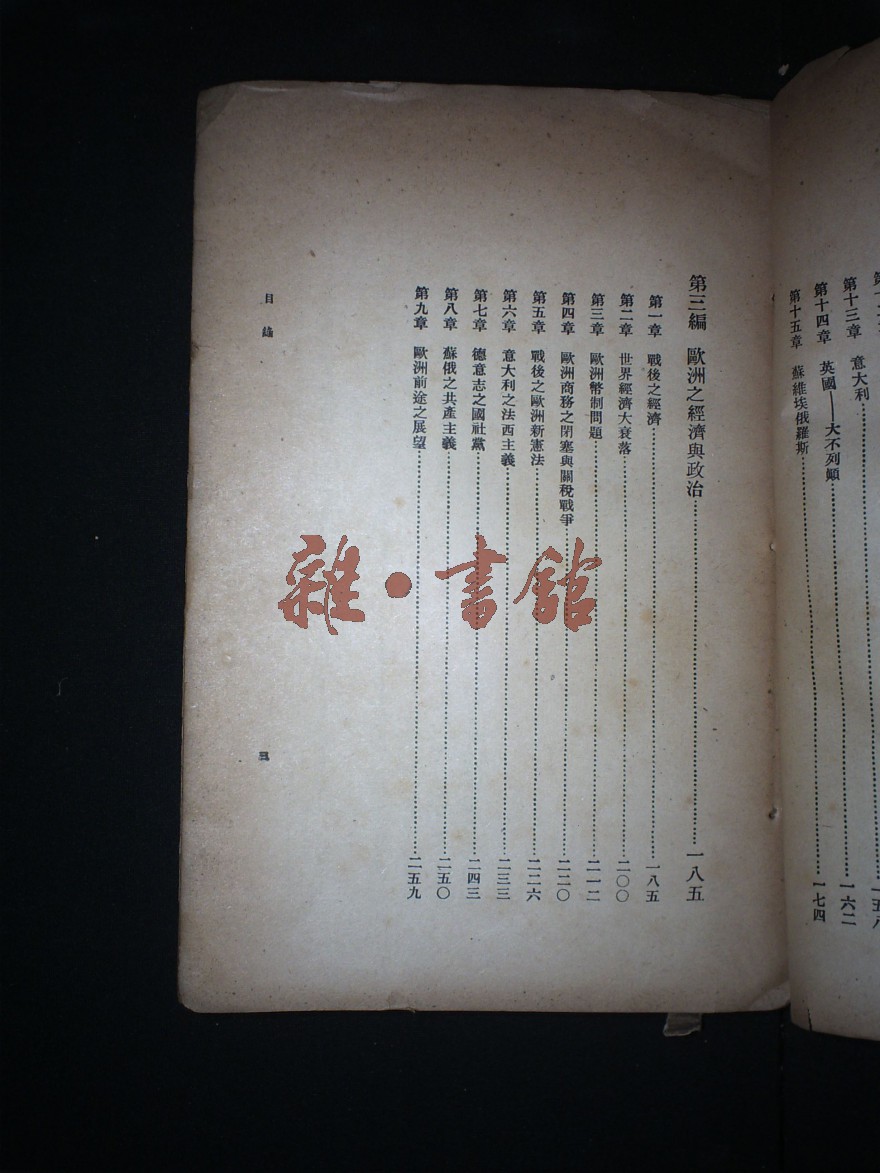 第十三章　意大利……一六二
第十四章　英國——大不列顛……一七四
第十五章　蘇維埃俄羅斯
第三編　歐洲之經濟與政治……一八五
第一章　戰後之經濟……一八五
第二章　世界經濟大衰落……二〇〇
第三章　歐洲幣制問題……二一二
第四章　歐洲商務之閉塞與關稅戰爭……二二〇
第五章　戰後之歐洲新憲法……二二六
第六章　意大利之法西主義……二三三
第七章　德意志之國社黨……二四三
第八章　蘇俄之共產主義……二五〇
第九章　歐洲前途之展望……二五九
目錄
三
雜·書館